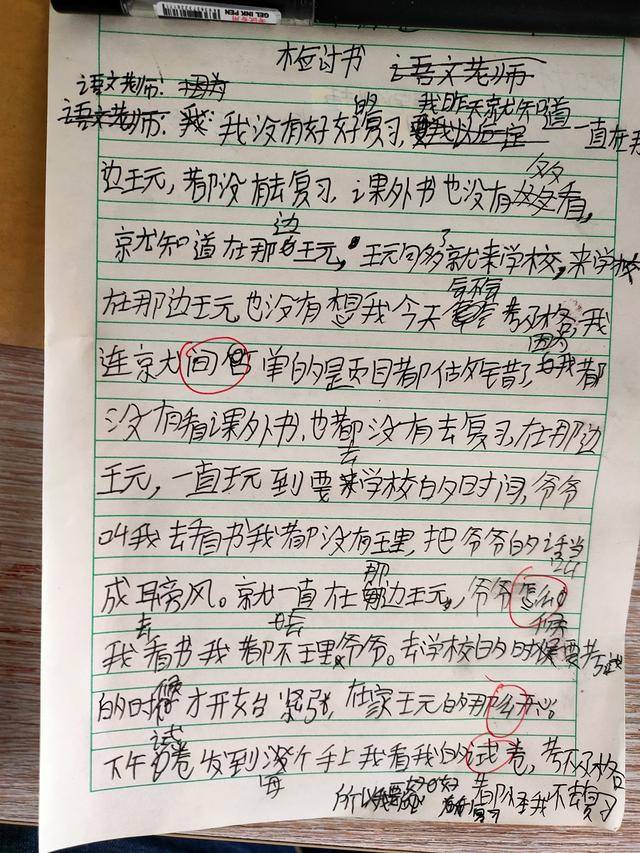 考试专用
GEL INK PEN
检讨书 语文老师
语文老师：因为
语文老师：我 我没有好好的复习，我昨天就知道一直在那
边玩，都没有去复习，课外书也没有多多看，
就知道在那边玩，玩够了就来学校，来学校
在那边玩也没有想我今天会不会考及格，我
连就间但单的是页目都做错了，因为我都
没有看课外书，也都没有去复习，在那边
玩，一直玩到要去学校的时间，爷爷
叫我去看书我都没有理，把爷爷的话当
成耳旁风。就一直在那边玩，爷爷怎么叫
我去看书我都不理爷爷。去学校的时候要考试
的时候才开始紧张，在家玩的那么开心
下午试卷发到每个手上我看我的试卷，考不及格
所以 好好 复习 都怪我不去复习